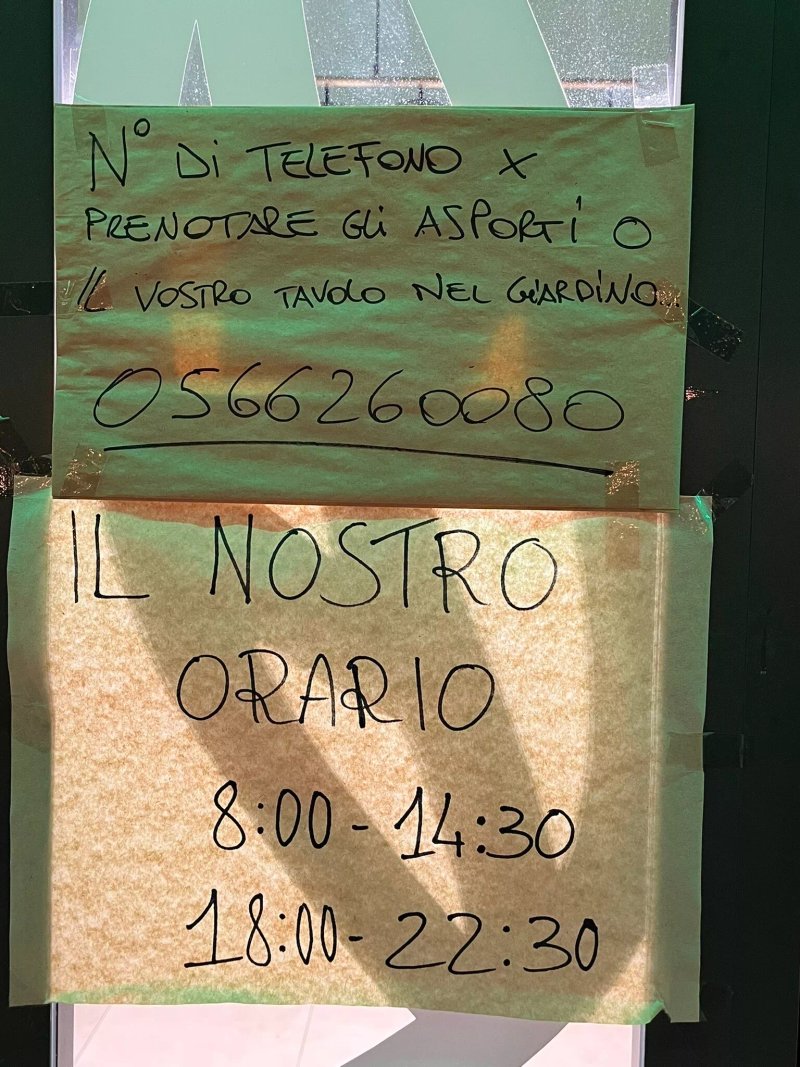 N° Di TELEFONO X
PRENOTARE GLi ASPORTi O
IL VOSTRO TAVOLO NEL GiARDiNO...
0566260080
IL NOSTRO
ORARIO
8:00 - 14:30
18:00 - 22:30